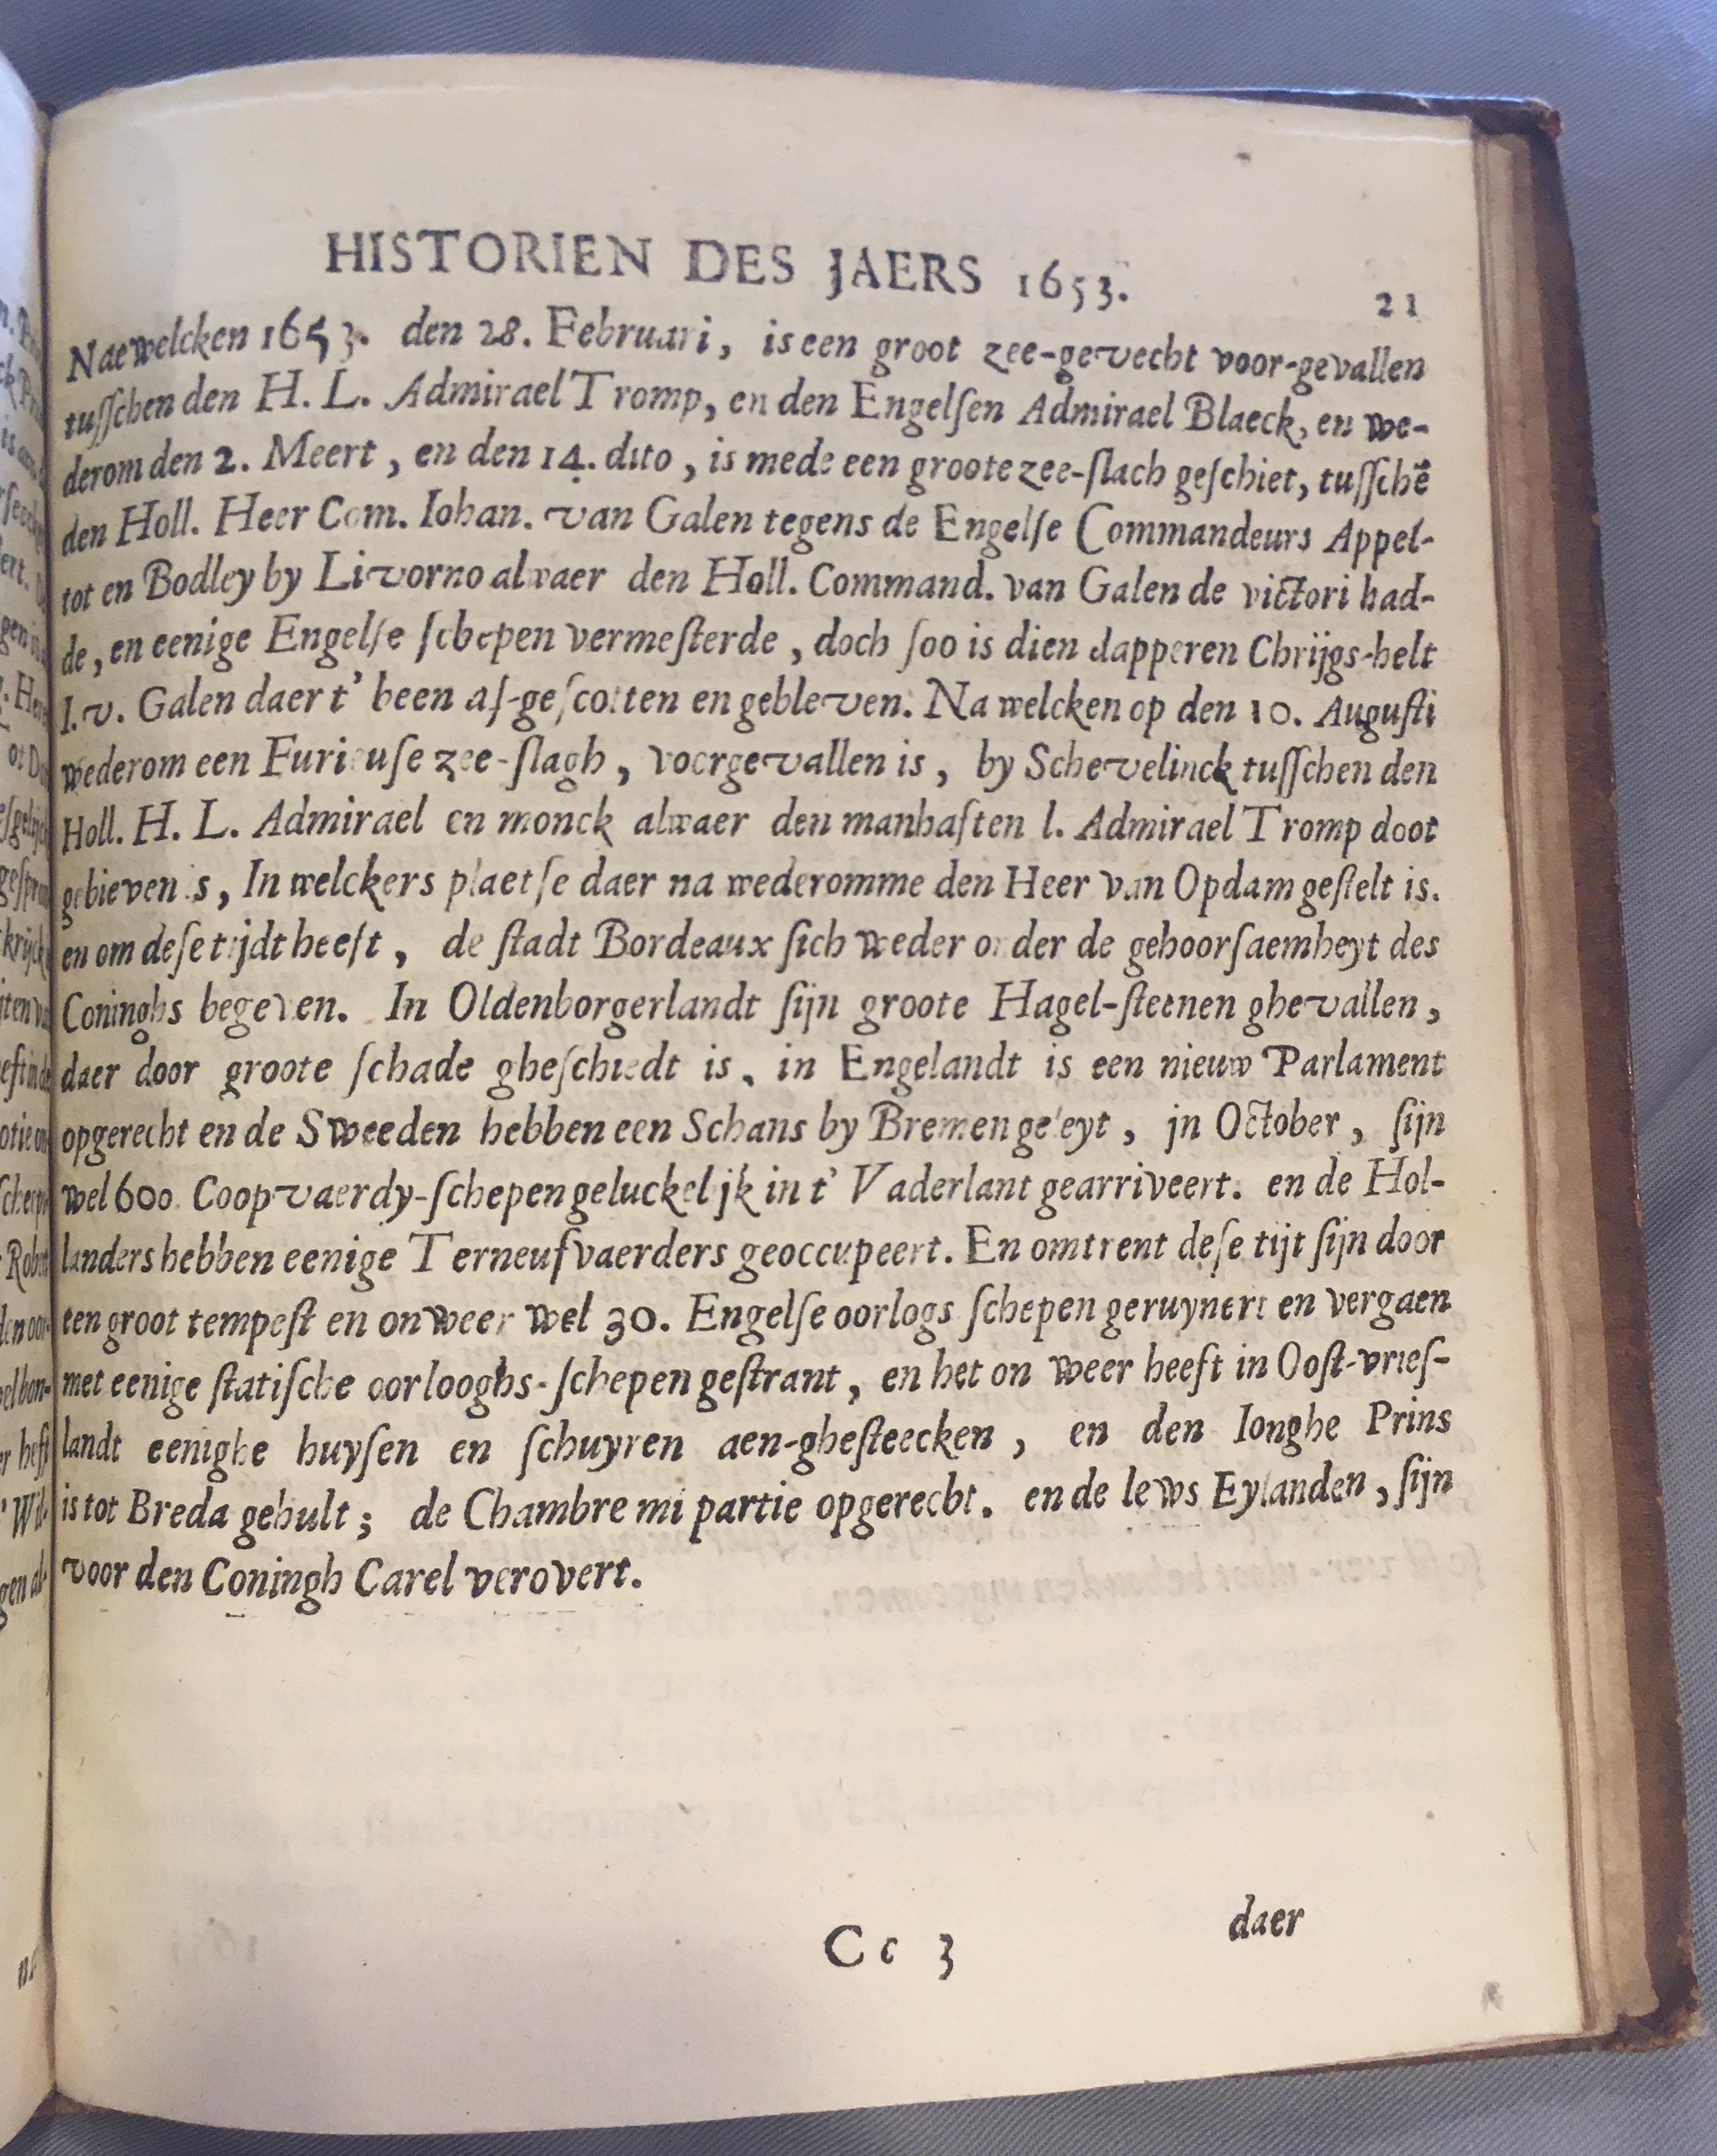 HISTORIEN DES JAERS 1653.
21
Nae welcken 1653. den 28. Februari, is een groot zee-gevecht voor-gevallen
tuſſchen den H. L. Admirael Tromp, en den Engelſen Admirael Blaeck, en we-
derom den 2. Meert, en den 14. dito, is mede een groote zee-ſlach geſchiet, tuſſchē
den Holl. Heer Com. Iohan. van Galen tegens de Engelſe Commandeurs Appel-
tot en Bodley by Livorno alwaer den Holl. Command. van Galen de victori had-
de, en eenige Engelſe ſchepen vermeſterde, doch ſoo is dien dapperen Chrijgs-helt
I. v. Galen daer t' been aſ-geſcotten en gebleven. Na welcken op den 10. Auguſti
wederom een Furieuſe zee-ſlagh, voorgevallen is, by Schevelinck tuſſchen den
Holl. H. L. Admirael en monck alwaer den manhaſten l. Admirael Tromp doot
gebieven is, In welckers plaetſe daer na wederomme den Heer van Opdam geſtelt is.
en om deſe tijdt heeſt, de ſtadt Bordeaux ſich weder onder de gehoorſaemheyt des
Coninghs begeven. In Oldenborgerlandt ſijn groote Hagel-ſteenen ghevallen,
daer door groote ſchade gheſchiedt is, in Engelandt is een nieuw Parlament
opgerecht en de Sweeden hebben een Schans by Bremen geleyt, jn October, ſijn
wel 600. Coopvaerdy-ſchepen geluckelijk in t' Vaderlant gearriveert. en de Hol-
landers hebben eenige Terneufvaerders geoccupeert. En omtrent deſe tijt ſijn door
een groot tempeſt en onweer wel 30. Engelſe oorlogs ſchepen geruynert en vergaen
met eenige ſtatiſche oorlooghs-ſchepen geſtrant, en het on weer heeft in Ooſt-vrieſ-
landt eenighe huyſen en ſchuyren aen-gheſteecken, en den Ionghe Prins
is tot Breda gehult; de Chambre mi partie opgerecht. en de lews Eylanden, ſijn
voor den Coningh Carel verovert.
Cc 3
daer